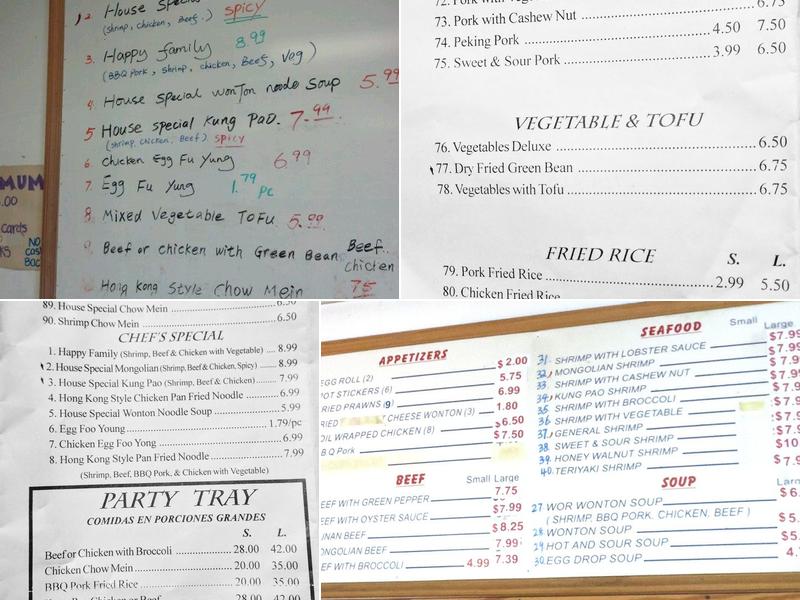 2. House Special
(shrimp, chicken, Beef.) spicy
3. Happy family 8.99
(BBQ Pork, shrimp, chicken, Beef, Veg)
4. House special wonton noodle soup 5.99
5 House special Kung Pao. 7.99
(shrimp, chicken, Beef) spicy
6. Chicken Egg Fu Yung 6.99
7. Egg Fu Yung 1.79 pc
8. Mixed Vegetable ToFu 5.99
9. Beef or chicken with Green Bean Beef..
chicken
Hong Kong Style Chow Mein 75
MUM
.00
cards
KS NO
73. Pork with Cashew Nut
74. Peking Pork 4.50 7.50
75. Sweet & Sour Pork 3.99 6.50
VEGETABLE & TOFU
76. Vegetables Deluxe 6.50
77. Dry Fried Green Bean 6.75
78. Vegetables with Tofu 6.75
FRIED RICE S. L.
79. Pork Fried Rice 2.99 5.50
80. Chicken Fried Rice
89. House Special Chow Mein 6.50
90. Shrimp Chow Mein 6.50
CHEF'S SPECIAL
1. Happy Family (Shrimp, Beef & Chicken with Vegetable) 8.99
2. House Special Mongolian (Shrimp, Beef & Chicken, Spicy) 8.99
3. House Special Kung Pao (Shrimp, Beef & Chicken) 7.99
4. Hong Kong Style Chicken Pan Fried Noodle 6.99
5. House Special Wonton Noodle Soup 5.99
6. Egg Foo Young 1.79/pc
7. Chicken Egg Foo Yong 6.99
8. Hong Kong Style Pan Fried Noodle 7.99
(Shrimp, Beef, BBQ Pork, & Chicken with Vegetable)
PARTY TRAY
COMIDAS EN PORCIONES GRANDES
S. L.
Beef or Chicken with Broccoli 28.00 42.00
Chicken Chow Mein 20.00 35.00
BBQ Pork Fried Rice 20.00 35.00
28.00 42.00
APPETIZERS
EGG ROLL (2) $2.00
POT STICKERS (6) 5.75
FRIED PRAWNS (9) 6.99
FRIED CHEESE WONTON (3) 1.80
FOIL WRAPPED CHICKEN (8) $6.50
B.B.Q Pork $7.50
BEEF Small Large
BEEF WITH GREEN PEPPER 7.75
BEEF WITH OYSTER SAUCE $7.99
HUNAN BEEF $8.25
MONGOLIAN BEEF 7.99
BEEF WITH BROCCOLI 4.99 7.39
SEAFOOD Small Large
31. SHRIMP WITH LOBSTER SAUCE $7.99
32. MONGOLIAN SHRIMP $7.9
33. SHRIMP WITH CASHEW NUT $7.9
34. KUNG PAO SHRIMP $7.9
35 SHRIMP WITH BROCCOLI $7.9
36 SHRIMP WITH VEGETABLE $7.9
37. GENERAL SHRIMP $7.9
38. SWEET & SOUR SHRIMP $7.9
39. HONEY WALNUT SHRIMP $10
40. TERIYAKI SHRIMP $7.9
SOUP Large
27 WOR WONTON SOUP $6.
( SHRIMP, BBQ PORK, CHICKEN, BEEF )
28 WONTON SOUP $5.
29 HOT AND SOUR SOUP $5.
30. EGG DROP SOUP 4.